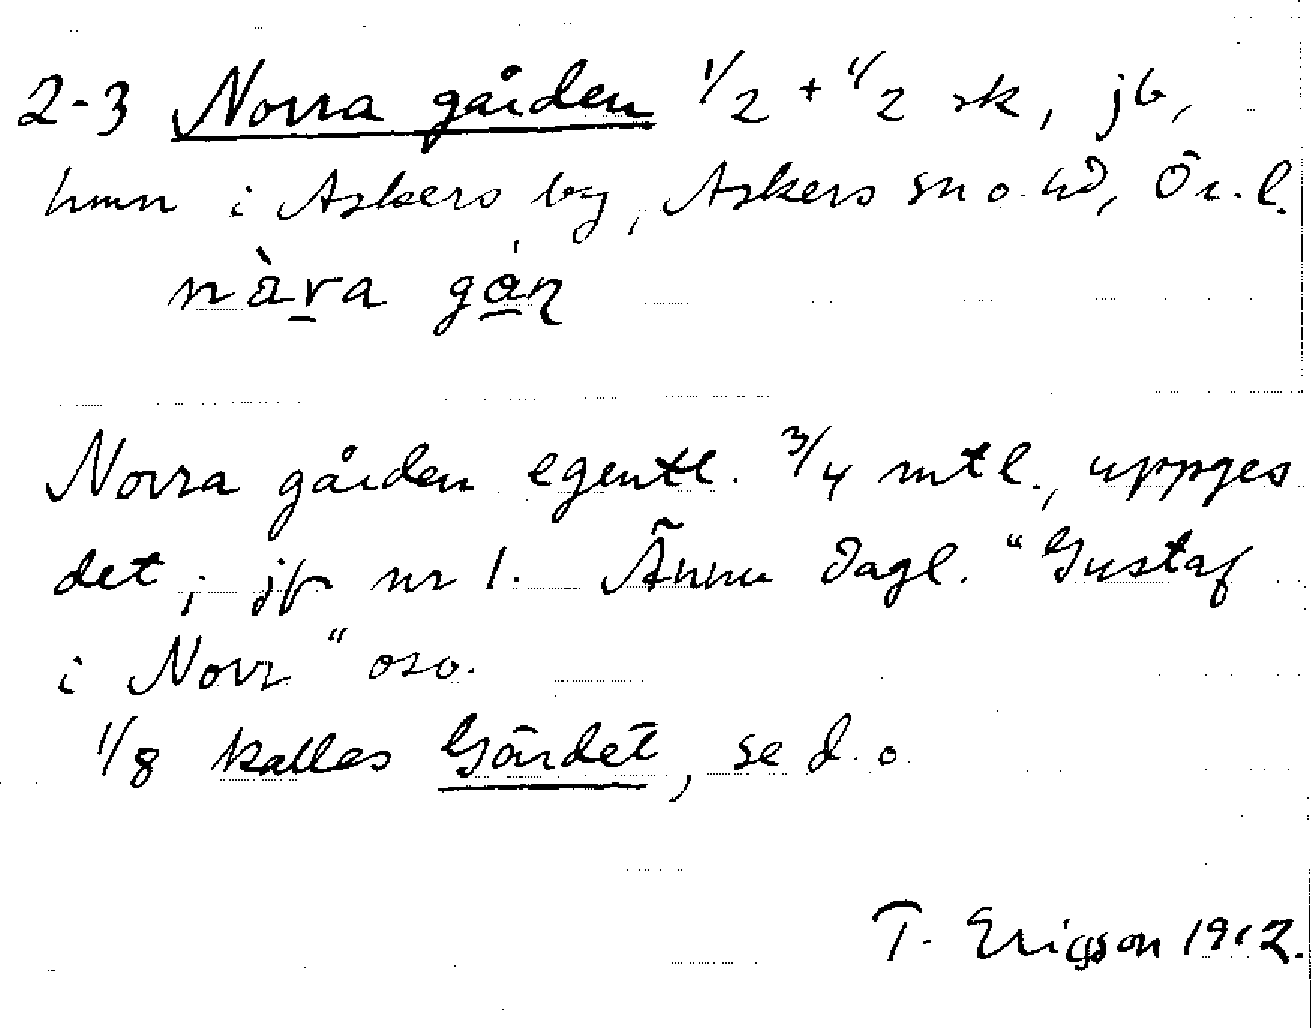 2-3 Norra gården 1/2 + 1/2 sk, jb,
hmn i Askers by, Askers sn o. hd, Ör. l.
nàra gán
Norra gården egentl. 3/4 mtl., uppges
det, jfr nr 1. Ännu dagl. "Gustaf
i Norr" oso.
1/8 kallas Gärdet, se d. o.
T. Ericsson 1912.